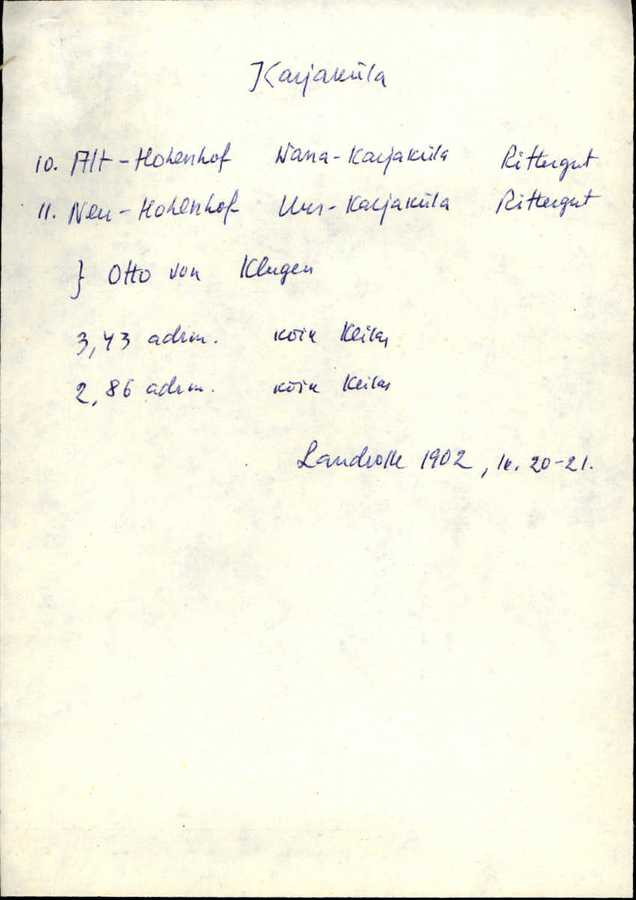 Karjaküla
10. Alt-Hohenhof Wana-Karjaküla Rittergut
11. Neu-Hohenhof Uus-Karjaküla Rittergut
} Otto von Klugen
3,43 adrm. Keilas
2,86 adrm. Keilas
Landrolle 1902, lk. 20-21.